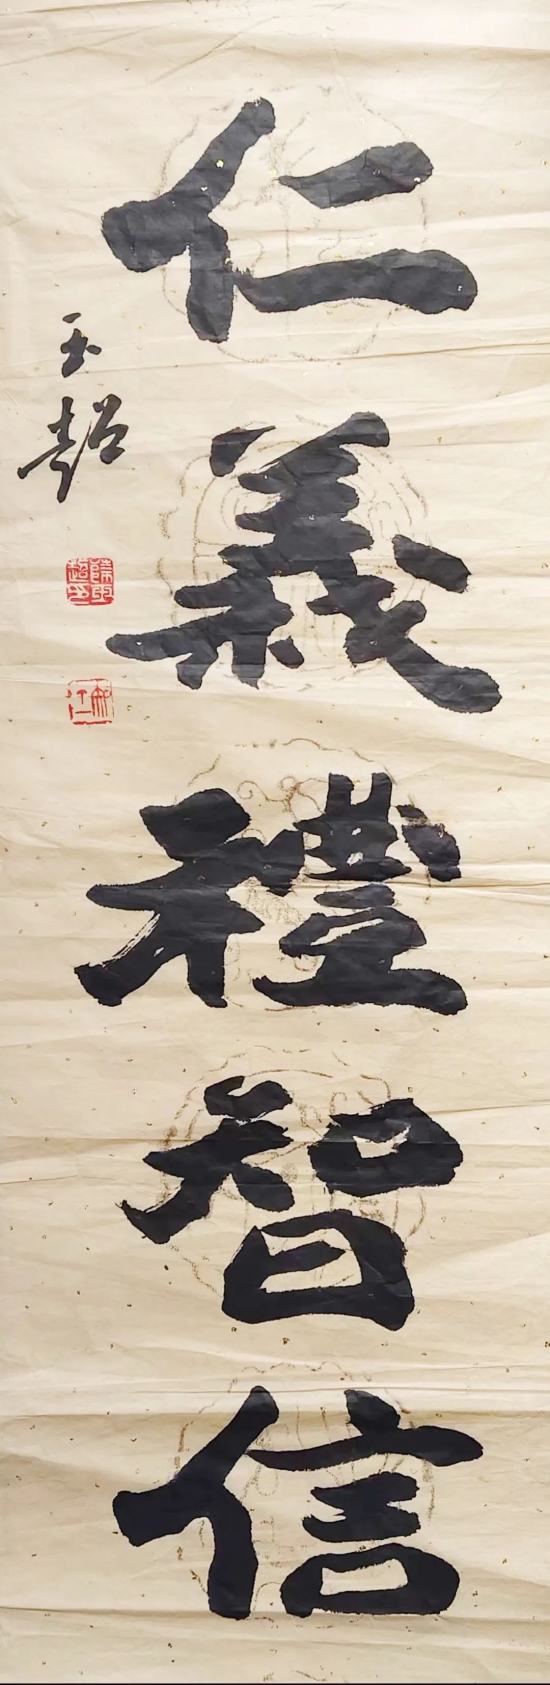 仁義禮智信
玉超